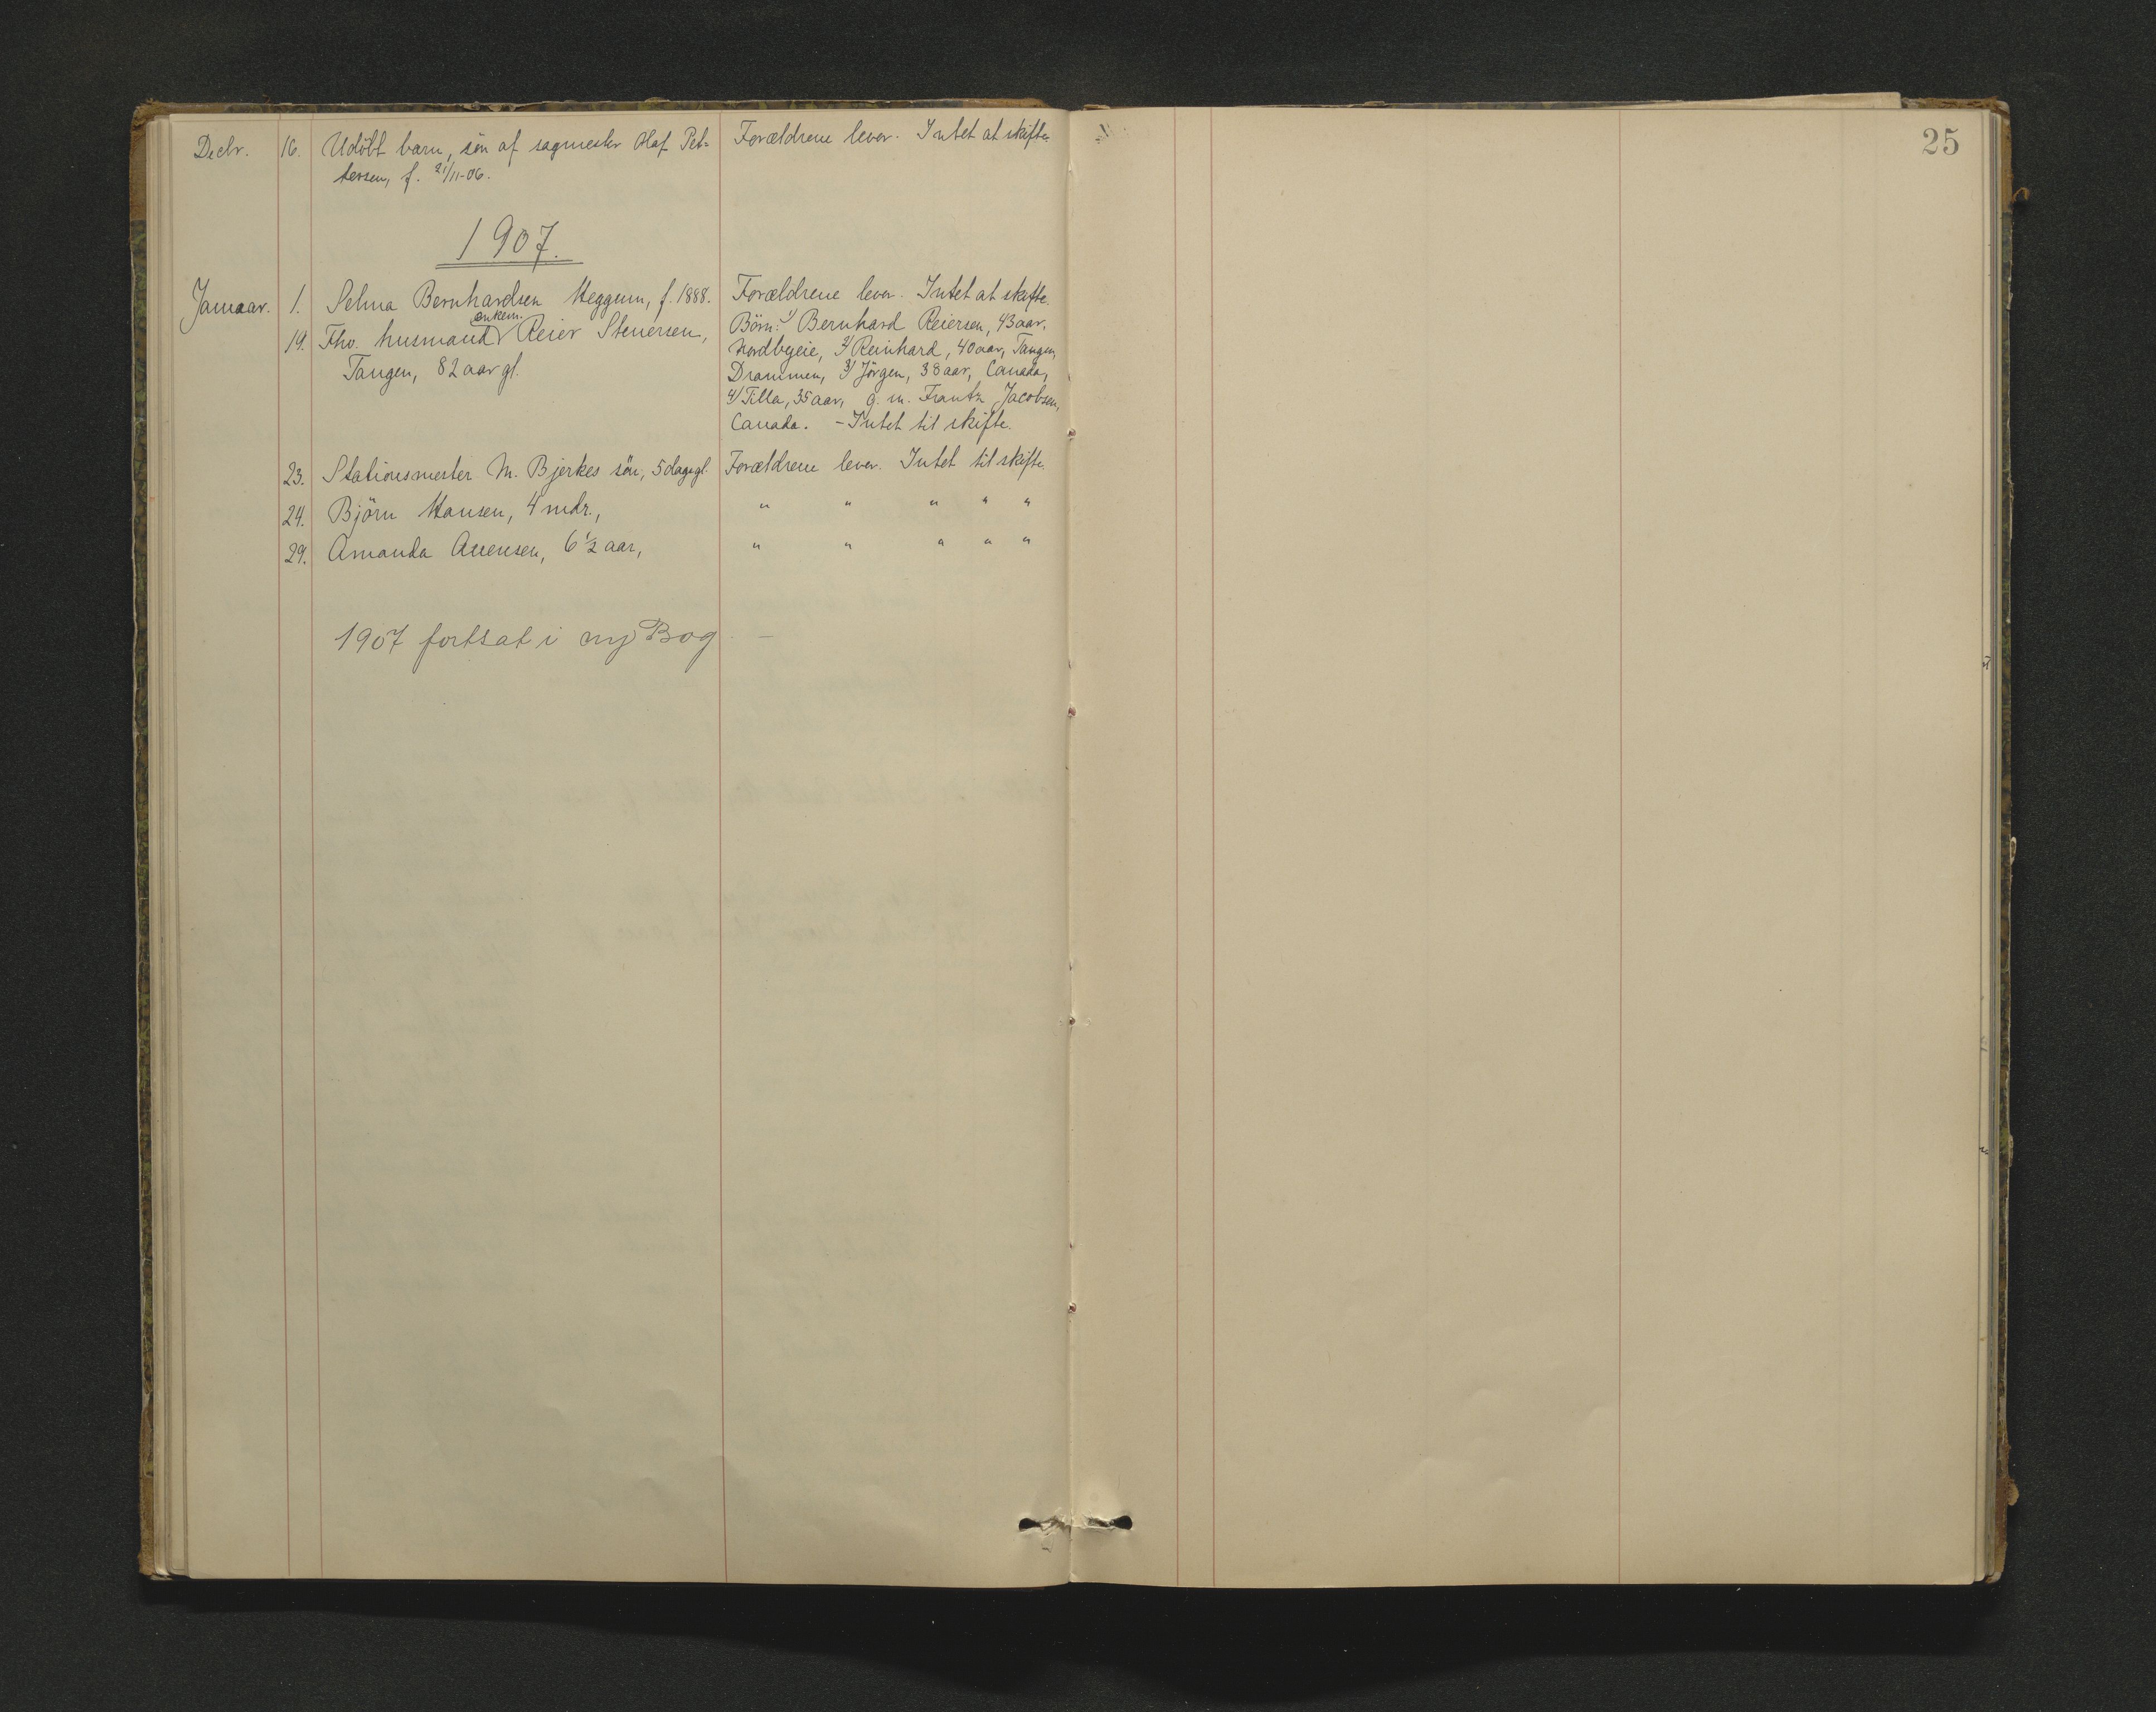 Decbr. 16. Udöbt barn, sön af sagmester Olaf Pet- Forældrene lever. Intet at skifte.
tersen, f. 21/11-06.
1907.
Januar. 1. Selma Bernhardsen Heggum, f. 1888. Forældrene lever. Intet at skifte.
enkem.
19. Fhv. husmand Reier Stenersen, Börn: 1/ Bernhard Reiersen, 43 aar,
Tangen, 82 aar gl. Nordbyeie, 2/ Reinhard, 40 aar, Tangen,
Drammen, 3/ Jörgen, 38 aar, Canada,
4/ Tilla, 35 aar, g. m. Frantz Jacobsen,
Canada. - Intet til skifte.
23. Stationsmester M. Bjerkes sön, 5 dage gl. Forældrene lever. Intet til skifte.
24. Björn Hansen, 4 mdr., " " " " "
29. Amanda Auensen, 6 1/2 aar, " " " " "
1907 fortsat i ny Bog. —
25